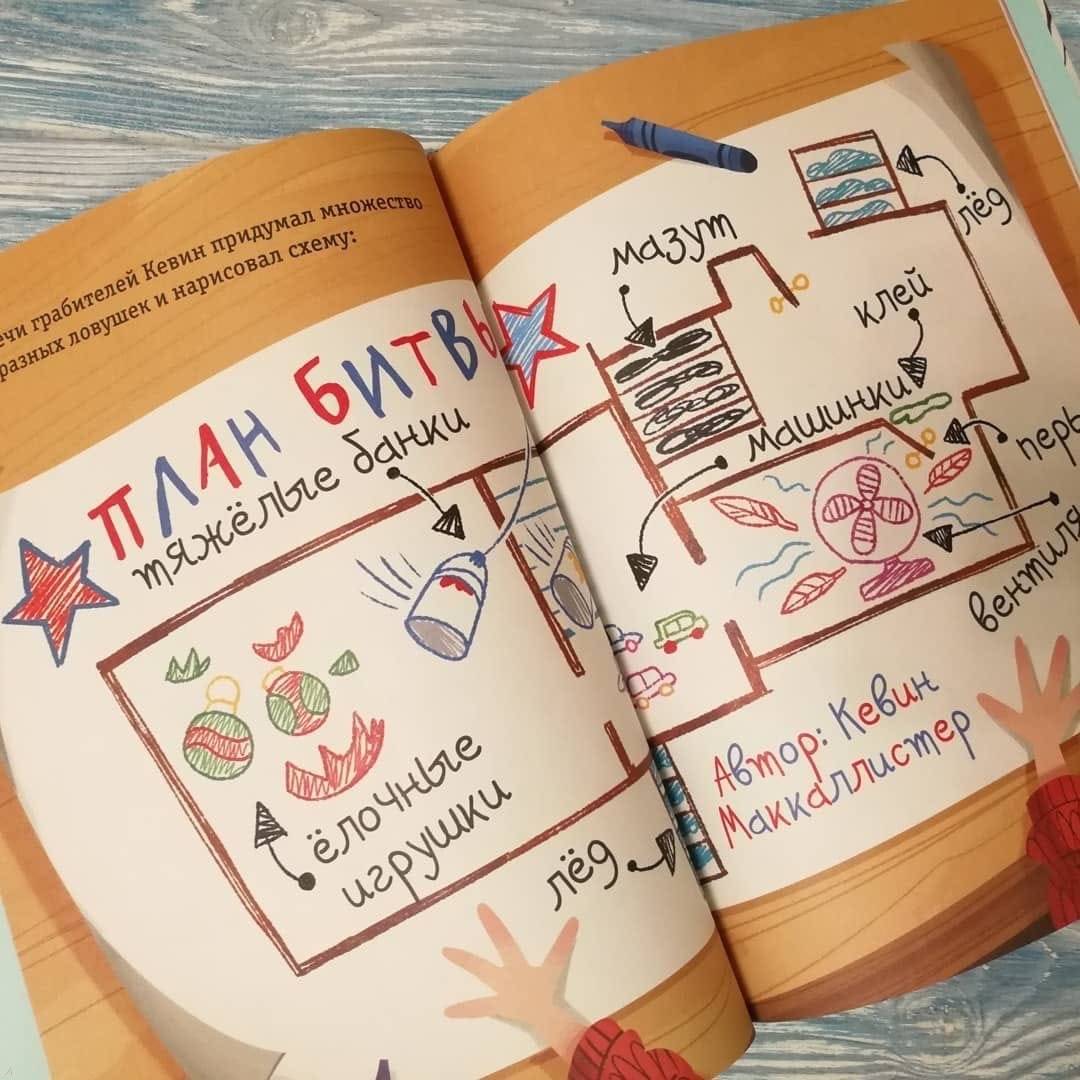 грабителей Кевин придумал множество
разных ловушек и нарисовал схему:
ПЛАН БИТВЫ
тяжёлые банки
ёлочные
игрушки
лёд
мазут
лёд
клей
машинки
Автор: Кевин
Маккаллистер